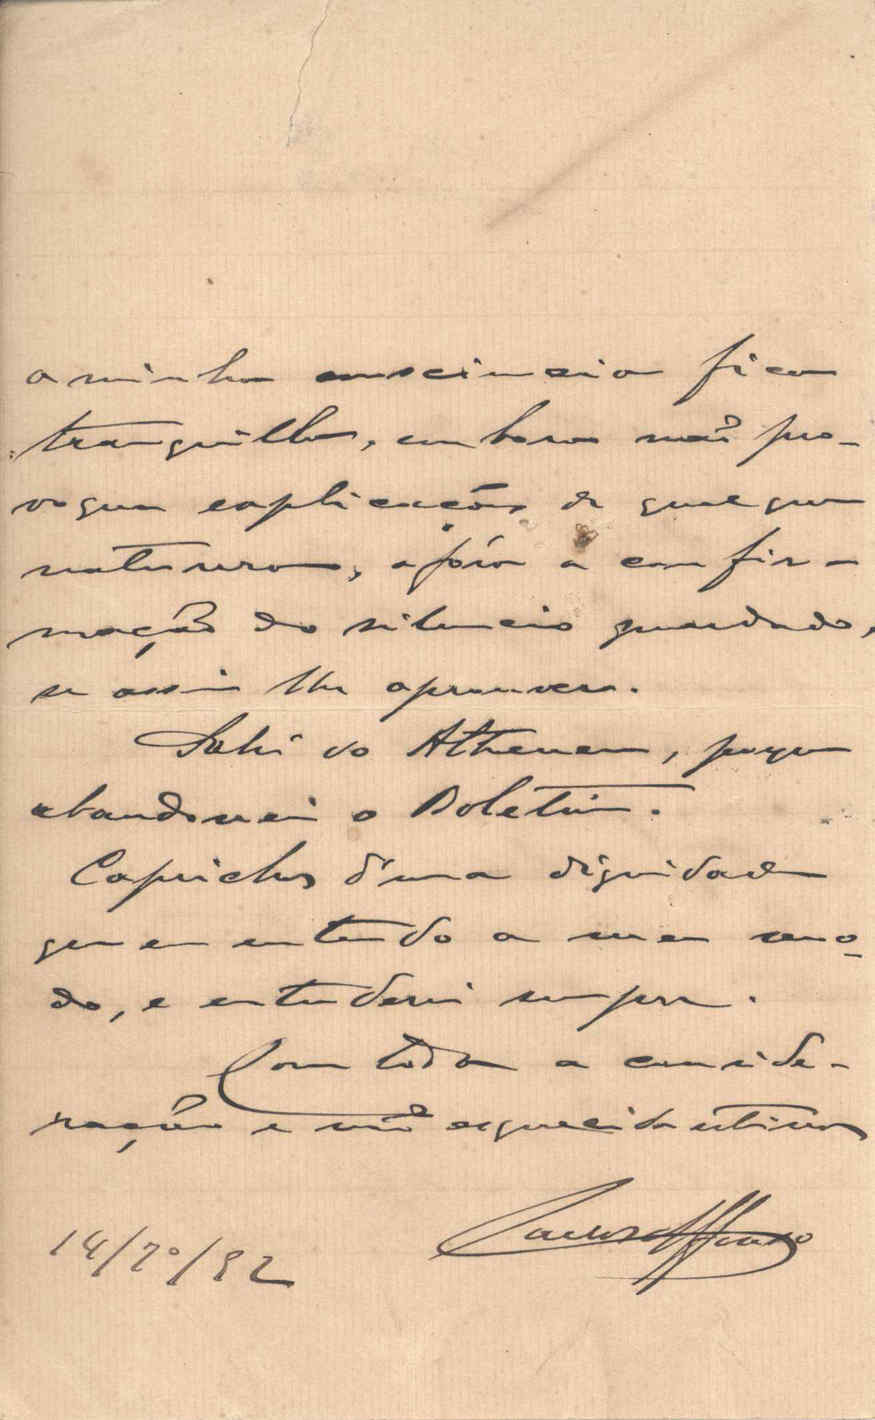 a minha consciencia fica
tranquilla, embora não pro-
voque explicações de qualquer
natureza, afóra a confir-
mação do silencio guardado,
se assim lhe aprouver.
Sahi do Atheneu, porque
abandonei o Boletim.
Caprichos d'uma dignidade
que eu entendo a meu mo-
do, e entenderei sempre.
Com toda a conside-
ração e não esquecida estima
14/7º/82